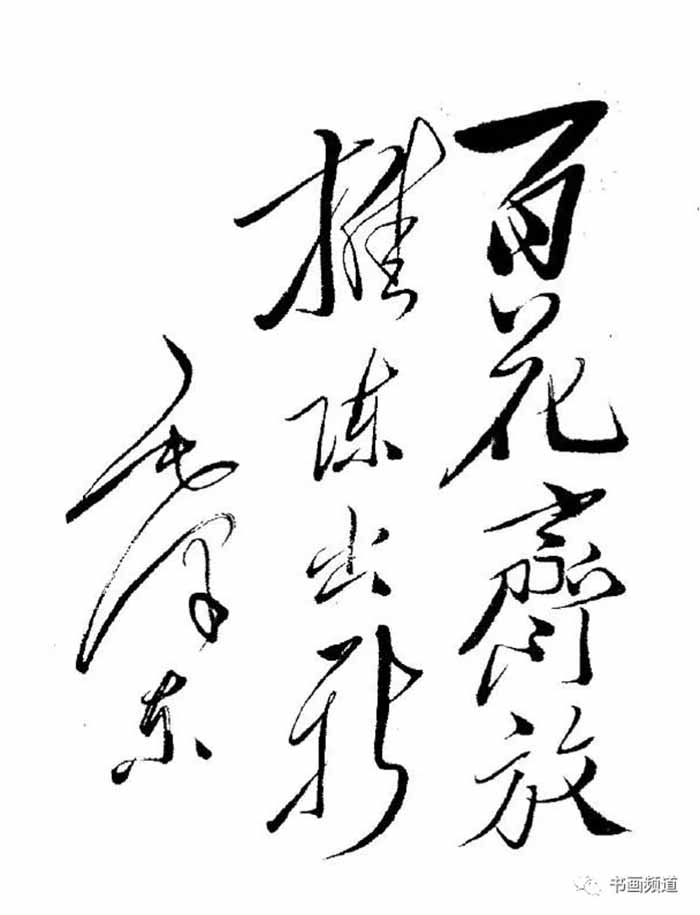 百花齊放
推陈出新
毛泽东
书画频道